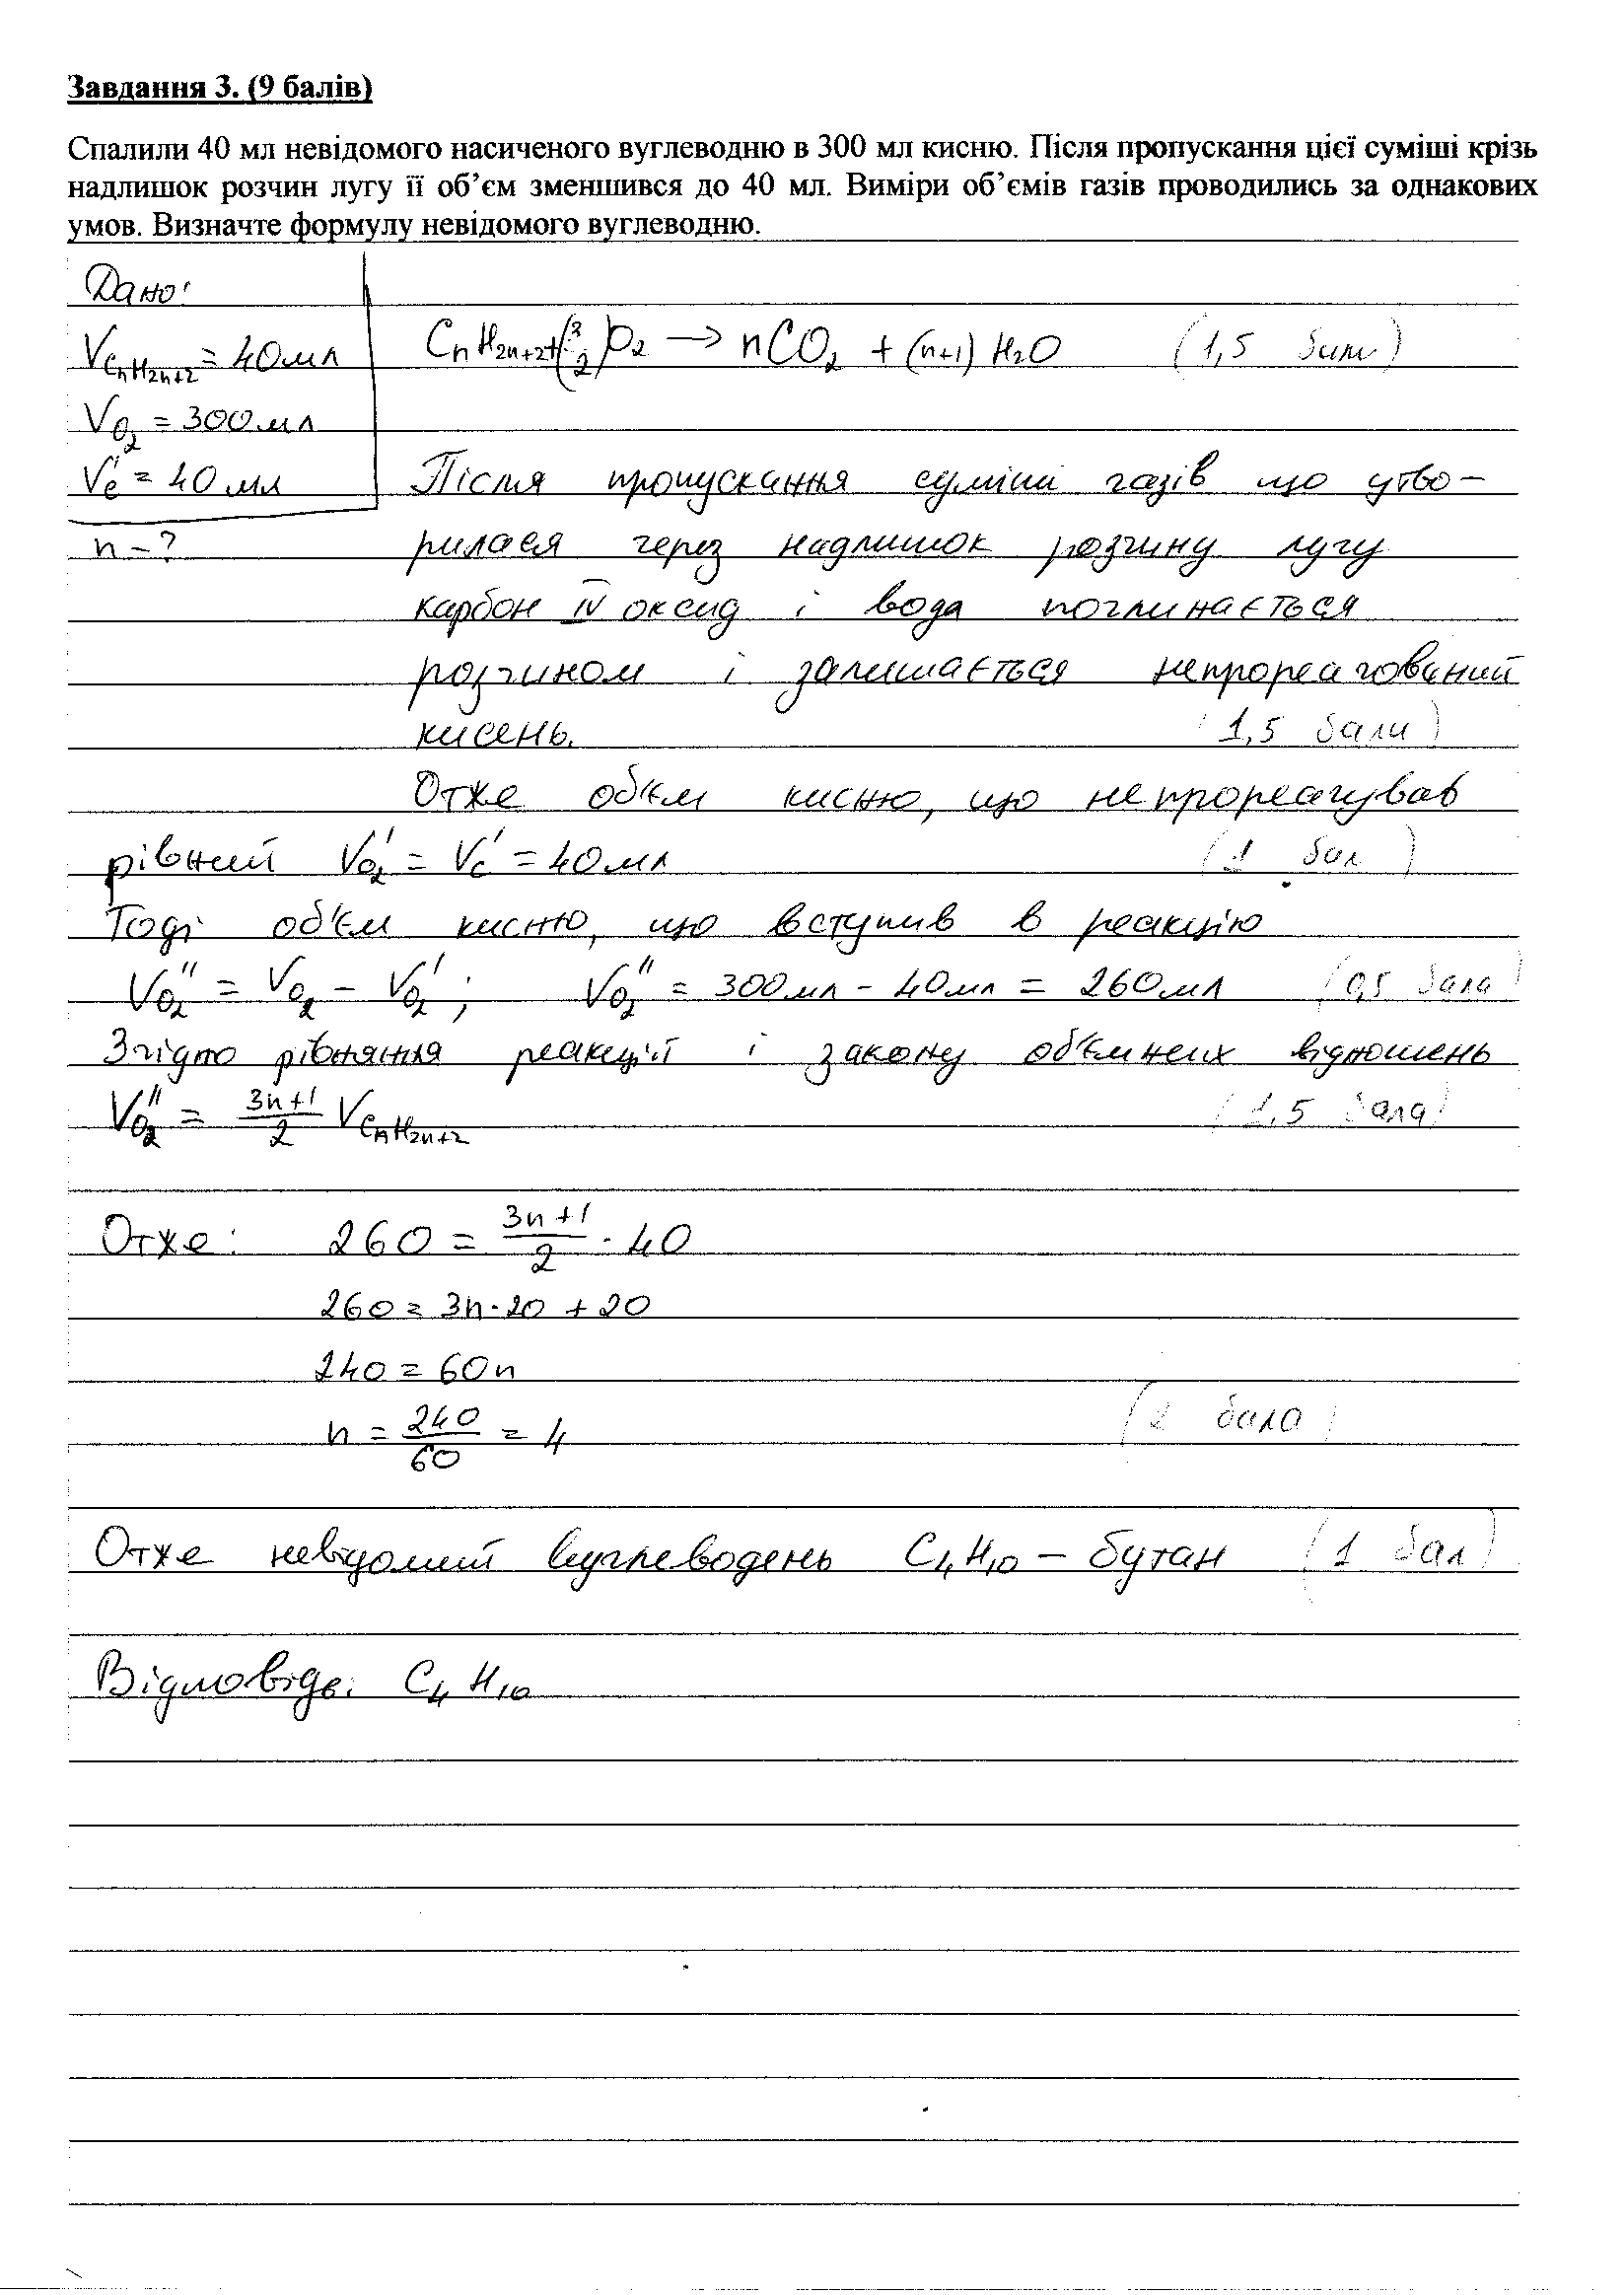 Завдання 3. (9 балів)
Спалили 40 мл невідомого насиченого вуглеводню в 300 мл кисню. Після пропускання цієї суміші крізь
надлишок розчин лугу її об’єм зменшився до 40 мл. Виміри об’ємів газів проводились за однакових
умов. Визначте формулу невідомого вуглеводню.
Дано:
V CnH2n+2 = 40 мл
CnH2n+2 + O2 → nCO2 + (n+1) H2O (1,5 бали)
V O2 = 300 мл
V'c = 40 мл
n - ?
Після пропускання суміші газів що утво-
рилася через надлишок розчину лугу
карбон IV оксид і вода поглинається
розчином і залишається непрореагований
кисень. (1,5 бали)
Отже об'єм кисню, що не прореагував
рівний V'O2 = V'c = 40 мл (1 бал)
Тоді об'єм кисню, що вступив в реакцію
V''O2 = VO2 - V'O2; V''O2 = 300 мл - 40 мл = 260 мл (0,5 бала)
Згідно рівняння реакції і закону об'ємних відношень
V''O2 = 3n+1/2 V CnH2n+2 (1,5 бала)
Отже: 260 = 3n+1/2 · 40
260 = 3n·20 + 20
240 = 60n
n = 240/60 = 4 (2 бала)
Отже невідомий вуглеводень C4H10 - бутан (1 бал)
Відповідь: C4H10